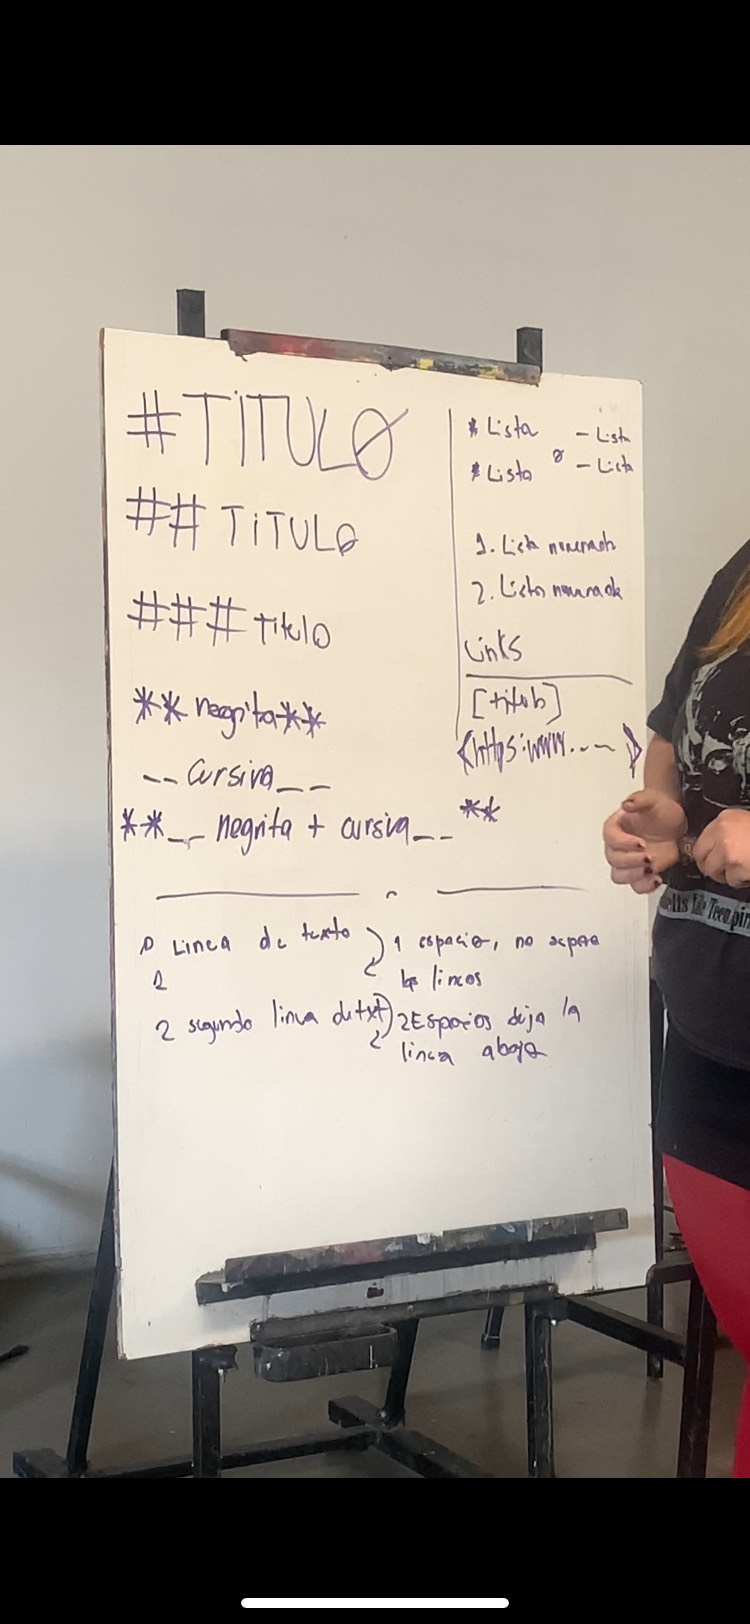 # TiTULO
## TiTULO
### Titulo
** negrita**
__ Cursiva__
**__ negrita + cursiva__ **
* Lista
* Lista
o
- Lista
- Lista
1. Lista numerada
2. Lista numerada
Links
[titulo]
<https:www....>
Linea de texto
1 espacio, no separa
las lineas
2
2 segunda linea de txt
2 Espacios deja la
linea abajo